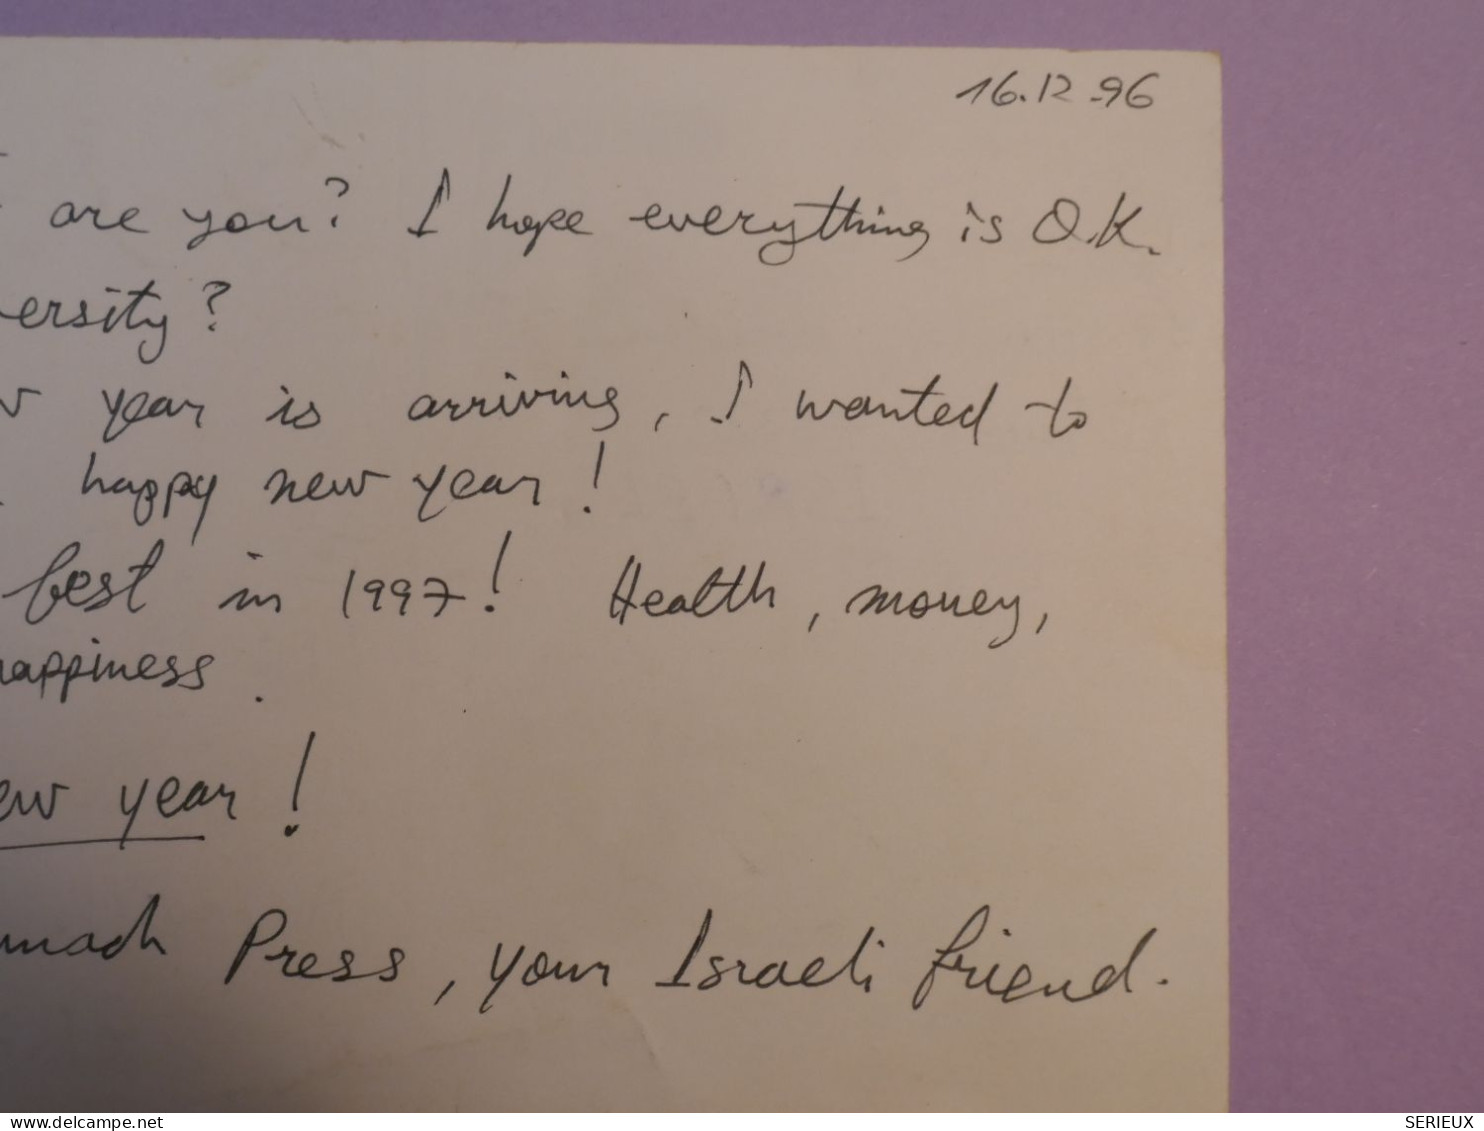 16.12.96
are you? I hope everything is O.K.
ersity?
year is arriving, I wanted to
happy new year!
best in 1997! Health, money,
happiness.
ew year!
mach Press, your Israeli friend.
www.delcampe.net
SERIEUX